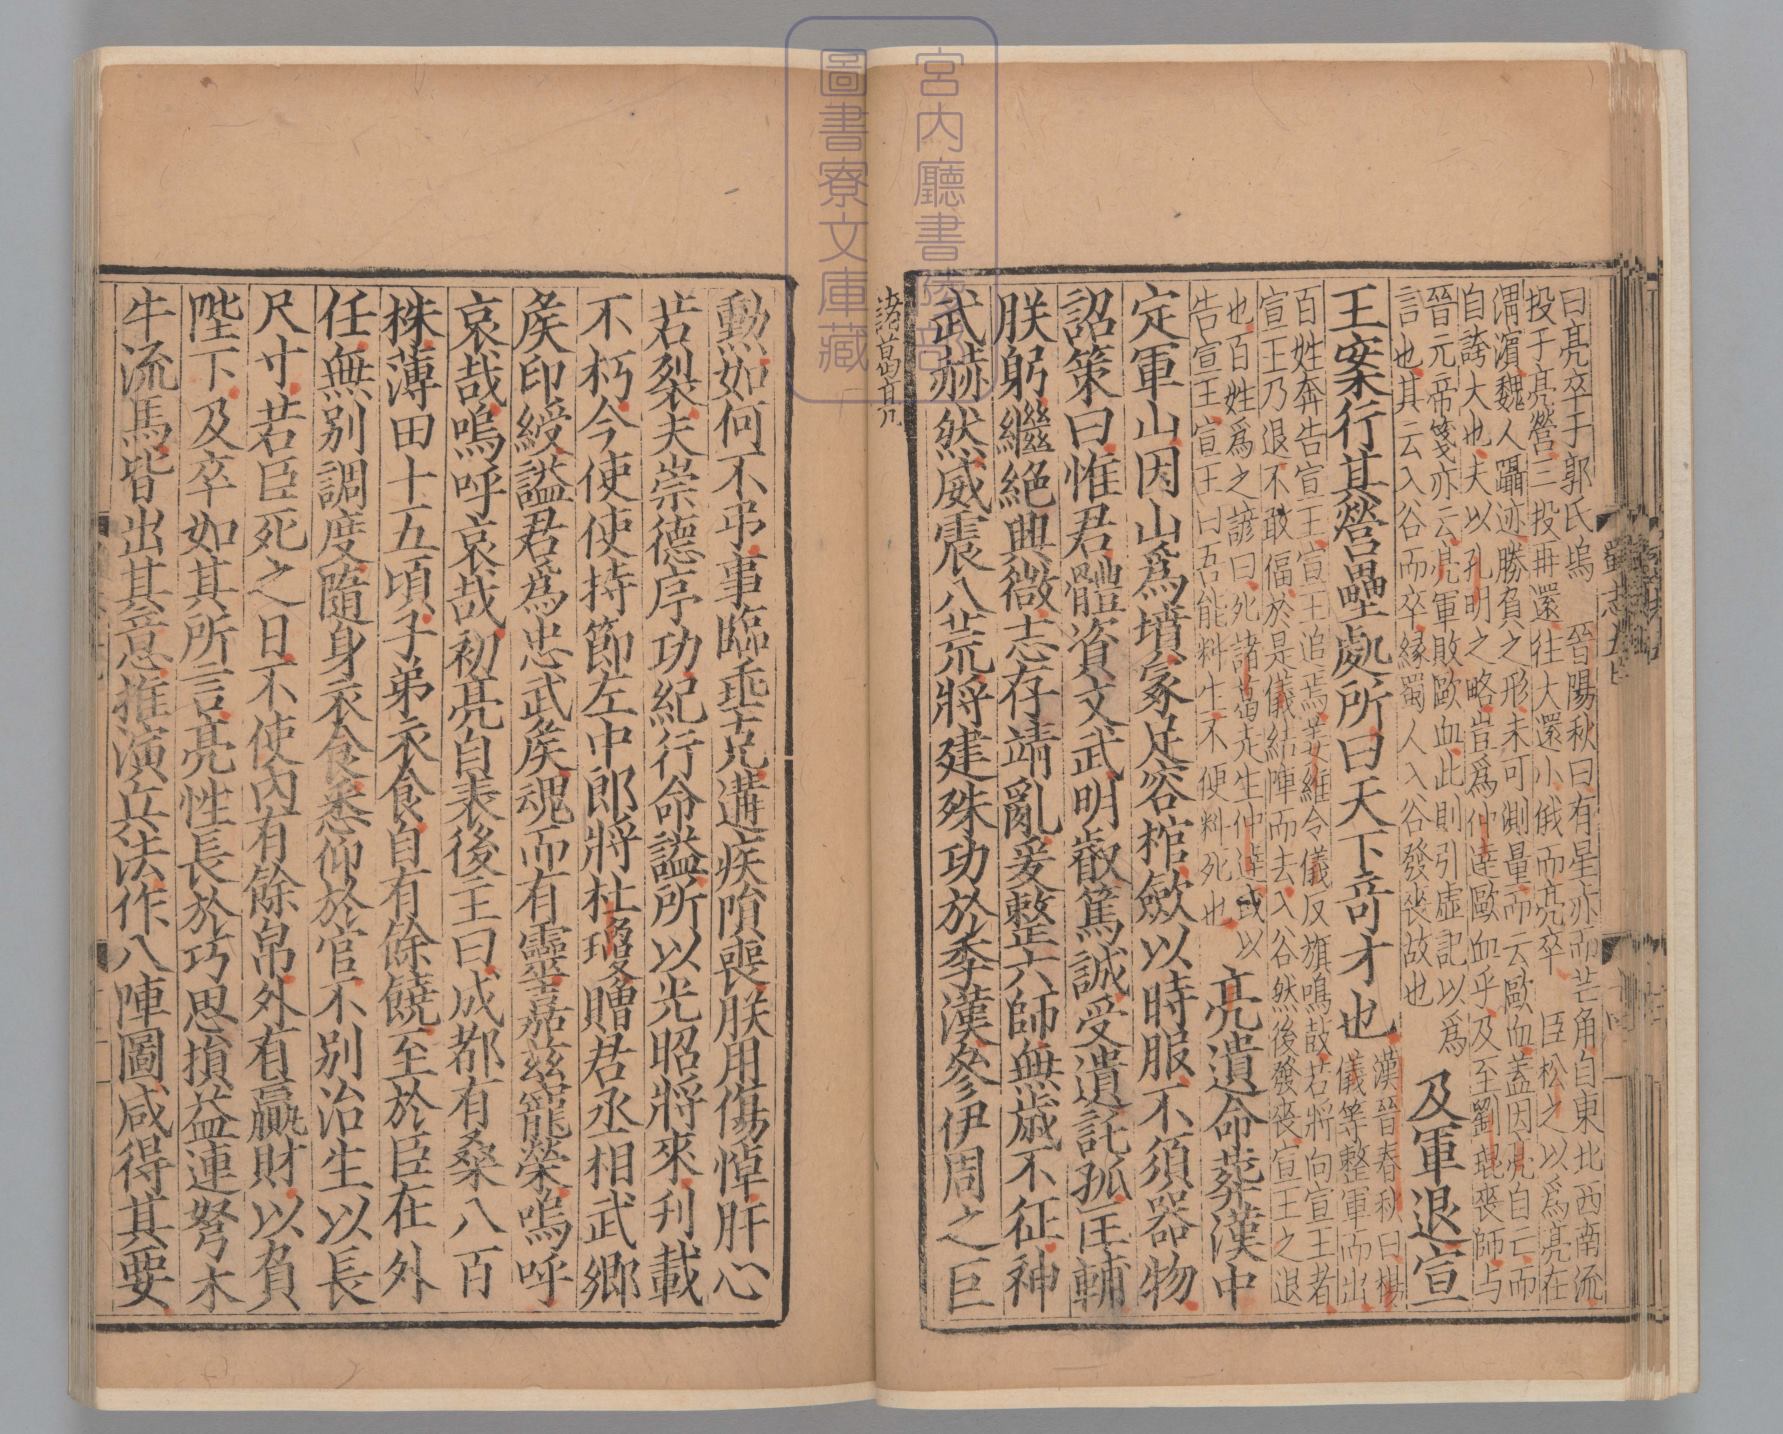 曰亮卒于郭氏塢　晉陽秋曰有星赤而芒角自東北西南流
投于亮營三投再還往大還小俄而亮卒　臣松之以爲亮在
渭濱魏人躡迹勝負之形未可測量而云歐血蓋因亮自亡而
自誇大也夫以孔明之略豈爲仲達歐血乎及至劉琨喪師与
晉元帝箋亦云亮軍敗歐血此則引虛記以爲
言也其云入谷而卒縁蜀人入谷發丧故也
及軍退宣
王案行其營壘處所曰天下奇才也
漢晉春秋曰楊
儀等整軍而出
百姓奔告宣王宣王追焉姜維令儀反旗鳴鼓若將向宣王者
宣王乃退不敢偪於是儀結陣而去入谷然後發丧宣王之退
也百姓爲之諺曰死諸葛走生仲達或以
告宣王宣王曰吾能料生不便料死也
亮遺命葬漢中
定軍山因山爲墳冢足容棺斂以時服不須器物
詔策曰惟君體資文武明叡篤誠受遺託孤匡輔
朕躬繼絶興微志存靖亂爰整六師無歲不征神
武赫然威震八荒將建殊功於季漢參伊周之巨
諸葛廿九
勳如何不弔事臨垂克遘疾隕喪朕用傷悼肝心
若裂夫崇德序功紀行命謚所以光昭將來刊載
不朽今使使持節左中郎將杜瓊贈君丞相武鄉
矦印綬謚君爲忠武矦魂而有靈嘉茲寵榮嗚呼
哀哉嗚呼哀哉初亮自表後主曰成都有桑八百
株薄田十五頃子弟衣食自有餘饒至於臣在外
任無別調度隨身衣食悉仰於官不別治生以長
尺寸若臣死之日不使內有餘帛外有贏財以負
陛下及卒如其所言亮性長於巧思損益連弩木
牛流馬皆出其意推演兵法作八陣圖咸得其要
宮内廳書陵部
圖書寮文庫藏